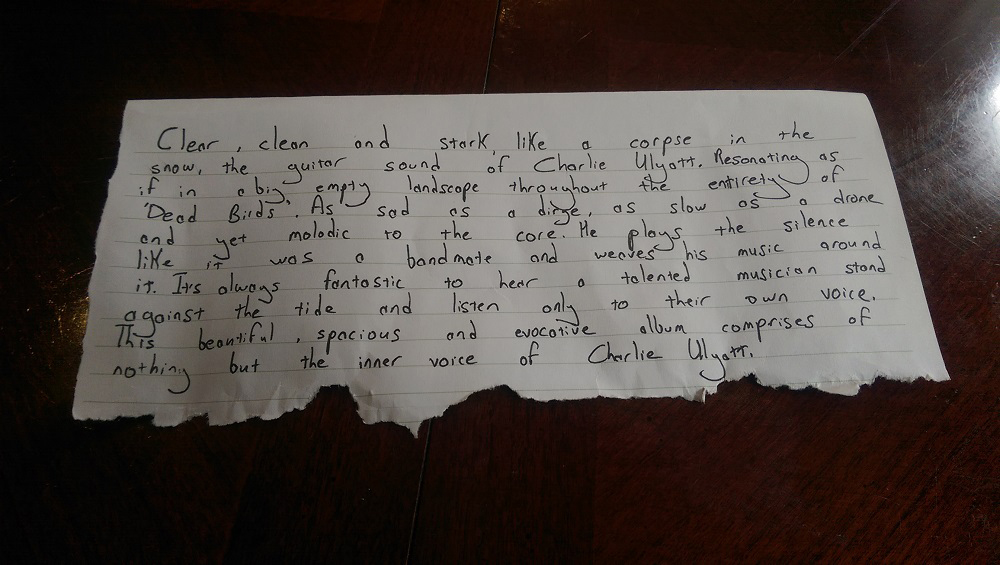 Clear, clean and stark, like a corpse in the
snow, the guitar sound of Charlie Ulyatt. Resonating as
if in a big, empty landscope throughout the entirety of
'Dead Birds'. As sad as a dirge, as slow as a drone
and yet molodic to the core. He plays the silence
like it was a bandmate and weaves his music around
it. It's always fantastic to hear a talented musician stand
against the tide and listen only to their own voice.
This beautiful, spacious and evocative album comprises of
nothing but the inner voice of Charlie Ulyatt.